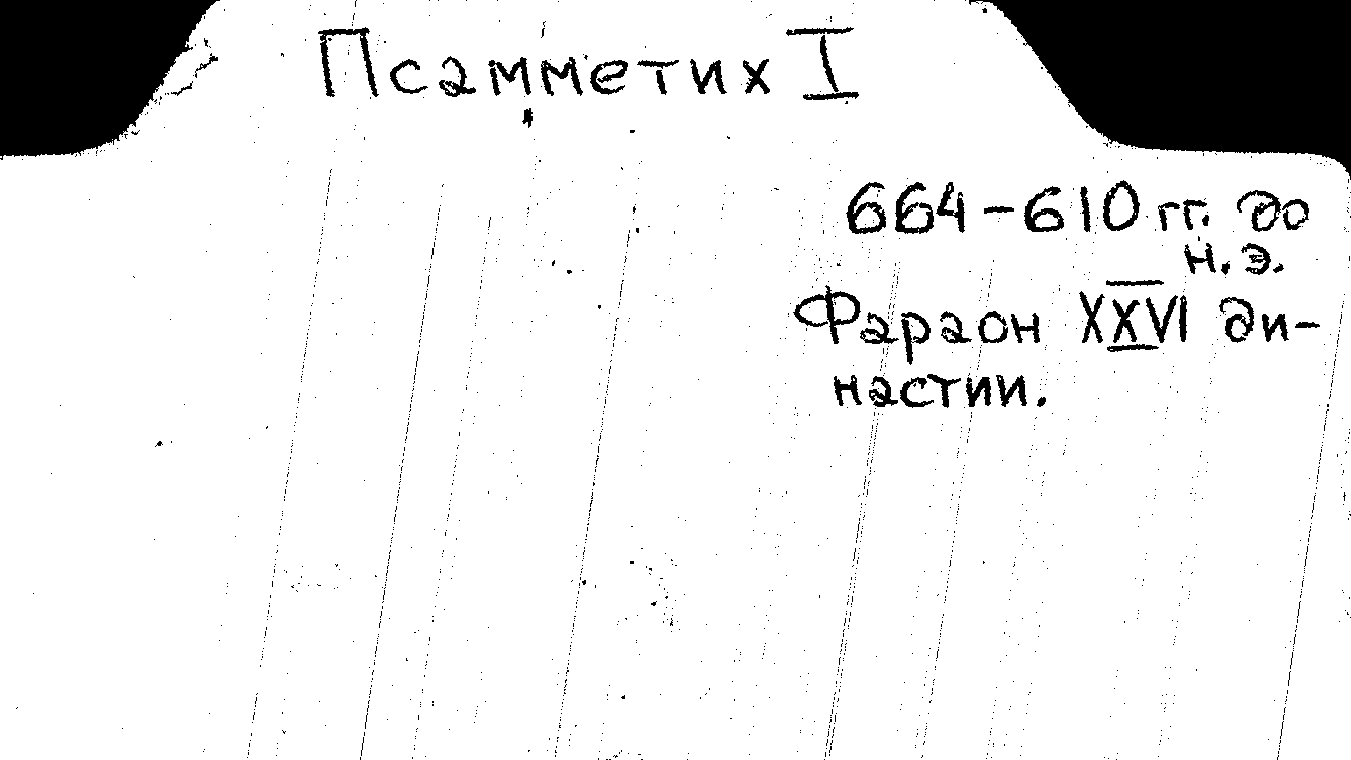 Псамметих I
664-610 гг. до
н.э.
Фараон XXVI ди-
настии.